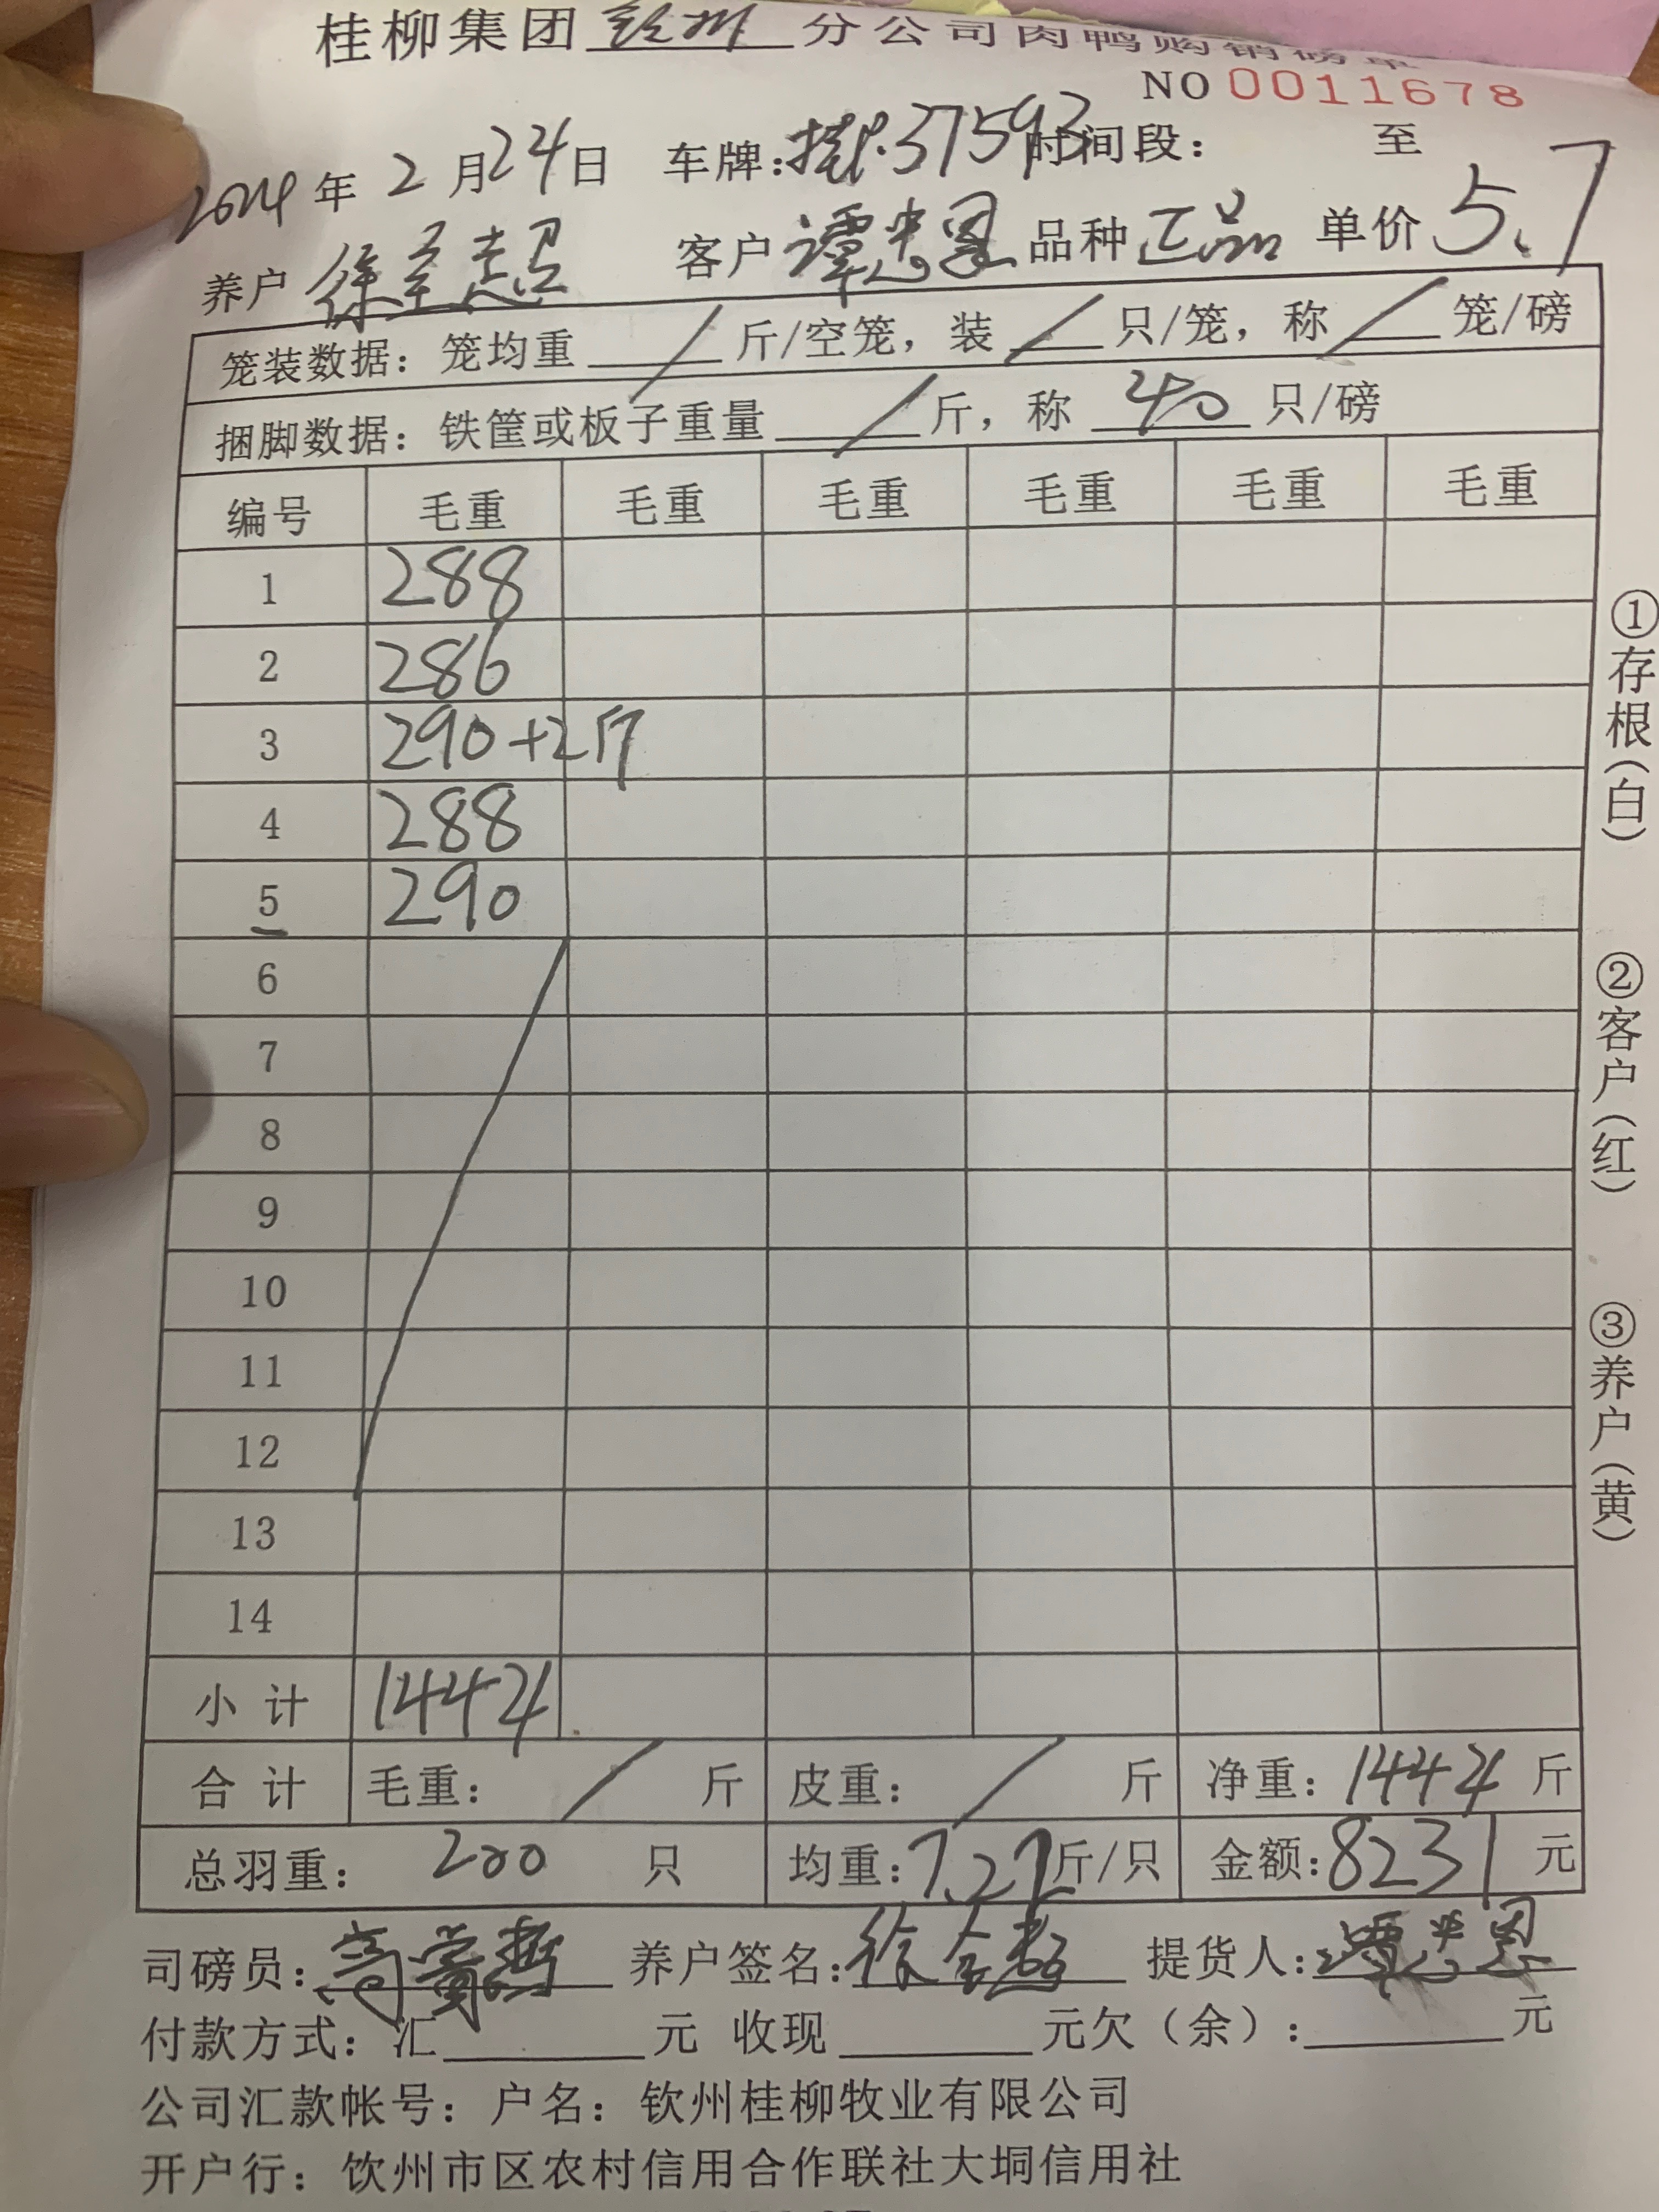 桂柳集团钦州分公司肉鸭购销磅单
NO 0011678
2024年2月24日 车牌:桂P.37593 时间段: 至
养户 徐全超 客户 谭忠恩 品种 正品 单价 5.7
笼装数据: 笼均重 / 斤/空笼, 装 / 只/笼, 称 / 笼/磅
捆脚数据: 铁筐或板子重量 / 斤, 称 40 只/磅
编号 毛重 毛重 毛重 毛重 毛重 毛重
1 288
2 286
3 290+2斤
4 288
5 290
6
7
8
9
10
11
12
13
14
小计 1444
合计 毛重: / 斤 皮重: / 斤 净重: 1444 斤
总羽重: 200 只 均重: 7.22斤/只 金额: 8231 元
司磅员: 养户签名: 徐全超 提货人: 谭忠恩
付款方式: 汇 元 收现 元欠(余): 元
公司汇款帐号: 户名: 钦州桂柳牧业有限公司
开户行: 饮州市区农村信用合作联社大垌信用社
①存根(白)
②客户(红)
③养户(黄)